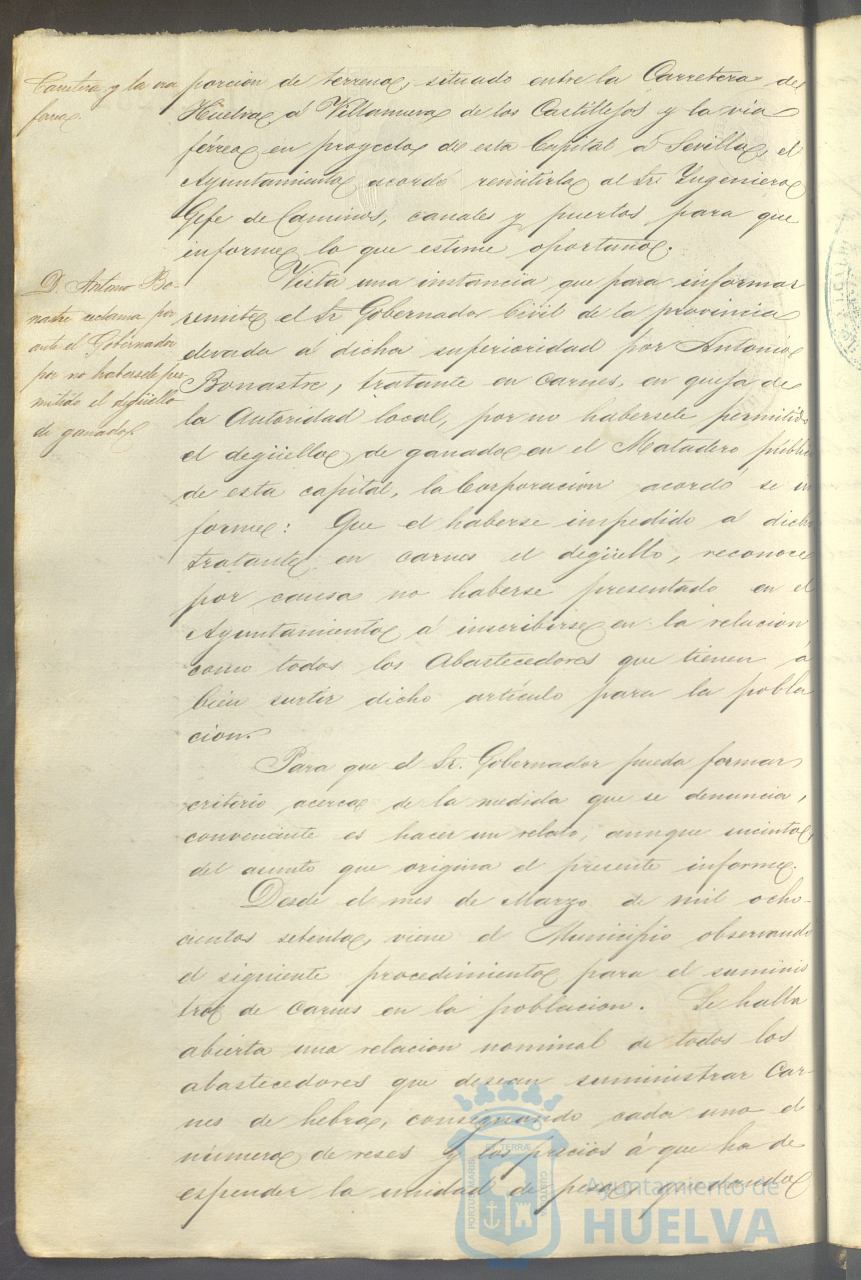 Carretera y la via
ferrea
porcion de terreno, situado entre la Carretera de
Huelva á Villanueva de los Castillejos y la via
férrea en proyecto de esta Capital á Sevilla, el
Ayuntamiento acordó remitirla al Sr Yngeniero
Gefe de Caminos, canales y puertos para que
informe lo que estime oportuno.
D. Antonio Bo-
nastre reclama por
ante el Gobernador
por no habersele per
mitido el degüello
de ganado
Vista una instancia que para informar
remite el Sr Gobernador Civil de la provincia
elevada á dicha superioridad por Antonio
Bonastre, tratante en carnes, en queja de
la Autoridad local, por no habersele permitido
el degüello de ganado en el Matadero públi
de esta capital, la Corporacion acordó se in
forme: Que el haberse impedido á dich
tratante en carnes el degüello, reconoce
por causa no haberse presentado en el
Ayuntamiento á inscribirse en la relacion
como todos los Abastecedores que tienen á
bien surtir dicho artículo para la pobla
cion.
Para que el Sr. Gobernador pueda formar
criterio acerca de la medida que se denuncia,
conveniente es hacer un relato, aunque sucinto,
del asunto que origina el presente informe.
Desde el mes de Marzo de mil ocho-
cientos setenta, viene el Municipio observando
el siguiente procedimiento para el suminis
tro de carnes en la poblacion. Se halla
abierta una relacion nominal de todos los
abastecedores que desean suministrar Car-
nes de hebra, consignando cada uno el
número de reses y los precios á que ha de
espender la unidad de peso, quedando
Ayuntamiento de
HUELVA